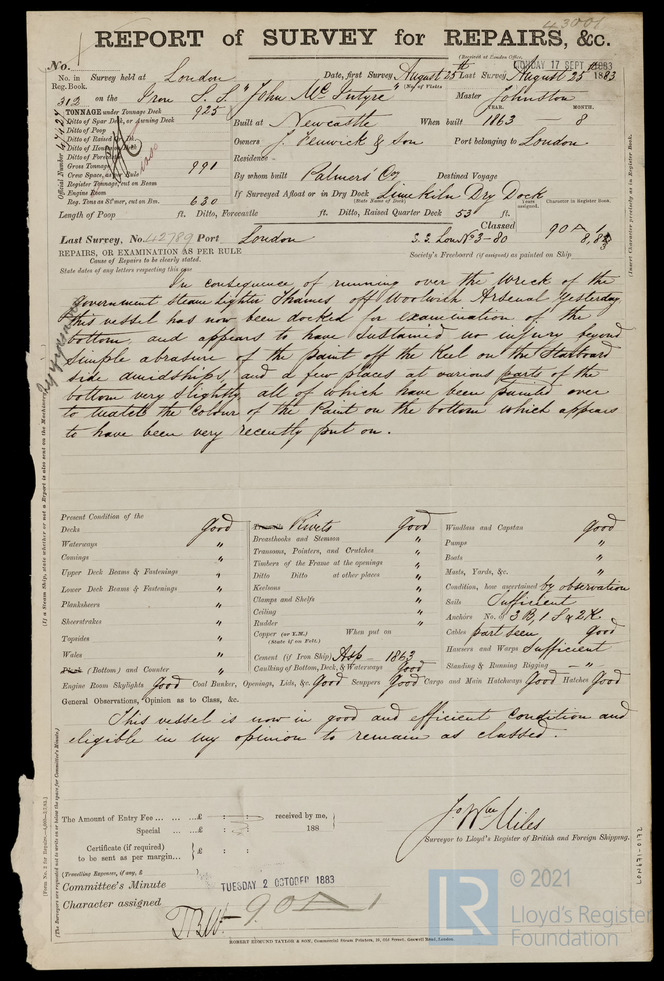 43001
REPORT of SURVEY for REPAIRS, &c.
(Received at London Office,
MONDAY 17 SEPT 1883
No.
No. in Reg. Book. Survey held at London Date, first Survey August 25th Last Survey August 25th 1883
(No. of Visits
312 on the Iron S.S. "John McIntyre" Master Johnston
TONNAGE under Tonnage Deck 925
YEAR. MONTH.
Ditto of Spar Deck, or Awning Deck
Built at Newcastle When built 1863 8
Ditto of Poop
Ditto of Raised Qr. Dk.
Owners J. Fenwick & Son Port belonging to London
Ditto of Houses on Deck
Ditto of Forecastle
Residence
Gross Tonnage 991
By whom built Palmers Co. Destined Voyage
Crew Space, as per Rule
Register Tonnage, cut on Beam
If Surveyed Afloat or in Dry Dock Limekiln Dry Dock
(State Name of Dock)
Engine Room
Reg. Tons as St'mer, cut on Bm. 630
Official Number
Years assigned. Character in Register Book.
Length of Poop ft. Ditto, Forecastle ft. Ditto, Raised Quarter Deck 53 ft.
Classed 90 A 1
Last Survey, No. 42789 Port London S.S. Lon No3-80 8,83
REPAIRS, OR EXAMINATION AS PER RULE Society's Freeboard (if assigned) as painted on Ship
Cause of Repairs to be clearly stated.
State dates of any letters respecting this case
In consequence of running over the wreck of the
Government Steam lighter Thames off Woolwich Arsenal yesterday
this vessel has now been docked for examination of the
bottom, and appears to have sustained no injury beyond
simple abrasure of the paint off the Keel on the Starboard
side amidships, and a few places at various parts of the
bottom very slightly, all of which have been painted over
to match the colour of the Paint on the bottom which appears
to have been very recently put on.
Present Condition of the
Decks Good
Waterways "
Comings "
Upper Deck Beams & Fastenings "
Lower Deck Beams & Fastenings "
Planksheers "
Sheerstrakes "
Topsides "
Wales "
(Bottom) and Counter "
Rivets Good
Breasthooks and Stemson "
Transoms, Pointers, and Crutches "
Timbers of the Frame at the openings "
Ditto Ditto at other places "
Keelsons "
Clamps and Shelfs "
Ceiling "
Rudder "
Copper (or Y.M.) When put on
(State if on Felt.)
Cement (if Iron Ship) 1863
Caulking of Bottom, Deck, & Waterways Good
Windlass and Capstan Good
Pumps "
Boats "
Masts, Yards, &c. "
Condition, how ascertained by observation
Sails Sufficient
Anchors No. of 3 B, 1 S & 2 K.
Cables part seen, Good
Hawsers and Warps Sufficient
Standing & Running Rigging "
Engine Room Skylights Good Coal Bunker, Openings, Lids, &c. Good Scuppers Good Cargo and Main Hatchways Good Hatches Good
General Observations, Opinion as to Class, &c.
This vessel is now in good and efficient condition and
eligible in my opinion to remain as classed.
The Amount of Entry Fee ... ... ... £ : : received by me,
Special ... ... £ : : 188
Certificate (if required) to be sent as per margin... £ : :
(Travelling Expenses, if any, £
Jo Wm Miles
Surveyor to Lloyd's Register of British and Foreign Shipping.
Committee's Minute TUESDAY 2 OCTOBER 1883
Character assigned 90 A 1
ROBERT EDMUND TAYLOR & SON, Commercial Steam Printers, 19, Old Street, Goswell Road, London.
(Insert Character precisely as in Register Book.
(If a Steam Ship, state whether or not a Report is also sent on the Machinery
(The Surveyors are requested not to write on or below the space for Committee's Minute.)
LON671-0172
LR
© 2021
Lloyd's Register
Foundation